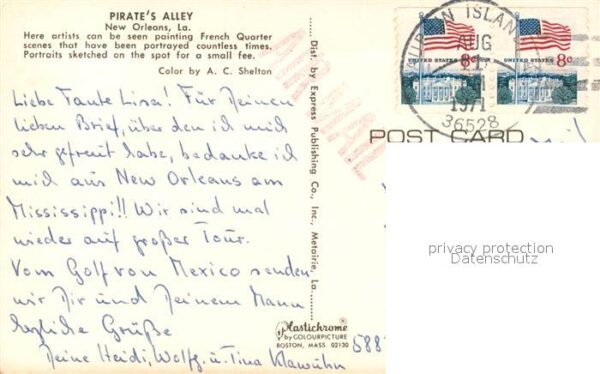 PIRATE'S ALLEY
New Orleans, La.
Here artists can be seen painting French Quarter
scenes that have been portrayed countless times.
Portraits sketched on the spot for a small fee.
Color by A. C. Shelton
Liebe Tante Lisa! Für Deinen
lieben Brief, über den ich mich
sehr gefreut habe, bedanke ich
mich aus New Orleans am
Mississippi!! Wir sind mal
wieder auf großer Tour.
Vom Golf von Mexico senden
wir Dir und Deinem Mann
herzliche Grüße
Deine Heidi, Wolfg. u. Tina
Dist. by Express Publishing Co., Inc., Metairie, La.
Plastichrome®
by COLOURPICTURE
BOSTON, MASS. 02130
AIR MAIL
ISLAND
AUG
1971
36528
UNITED STATES 8c
UNITED STATES 8c
POST CARD
privacy protection
Datenschutz